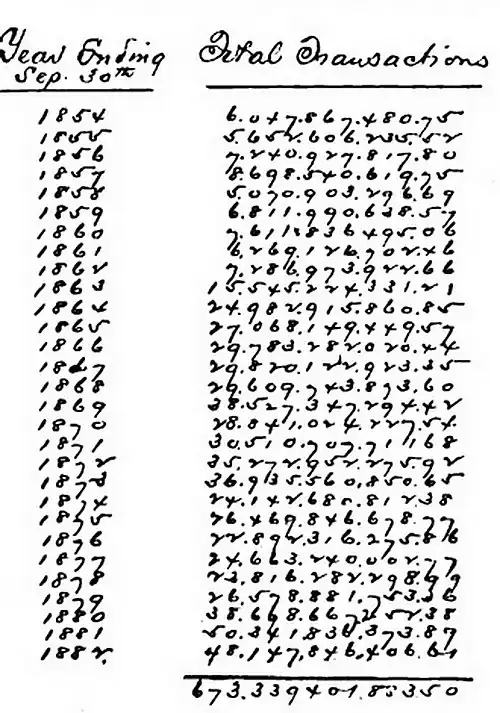 Year Ending Total Transactions
Sep. 30th
1854 6.047.867.480.75
1855 5.652.606.235.52
1856 7.240.927.817.80
1857 8.698.540.619.75
1858 5.070.903.296.69
1859 6.811.990.638.57
1860 7.611.836.495.06
1861 6.269.126.702.46
1862 7.286.973.922.66
1863 15.545.224.331.21
1864 24.982.915.860.85
1865 27.068.149.449.57
1866 29.783.282.020.44
1867 29.820.122.923.35
1868 29.609.743.873.60
1869 38.527.347.294.42
1870 28.841.024.227.54
1871 30.510.707.711.68
1872 35.272.952.275.92
1873 36.935.560.850.65
1874 24.142.680.812.38
1875 26.469.846.678.77
1876 22.892.316.275.86
1877 24.663.240.002.77
1878 23.816.282.298.99
1879 26.578.881.753.36
1880 38.698.667.252.38
1881 50.341.836.373.87
1882. 48.147.846.406.61
673.339401.883.50